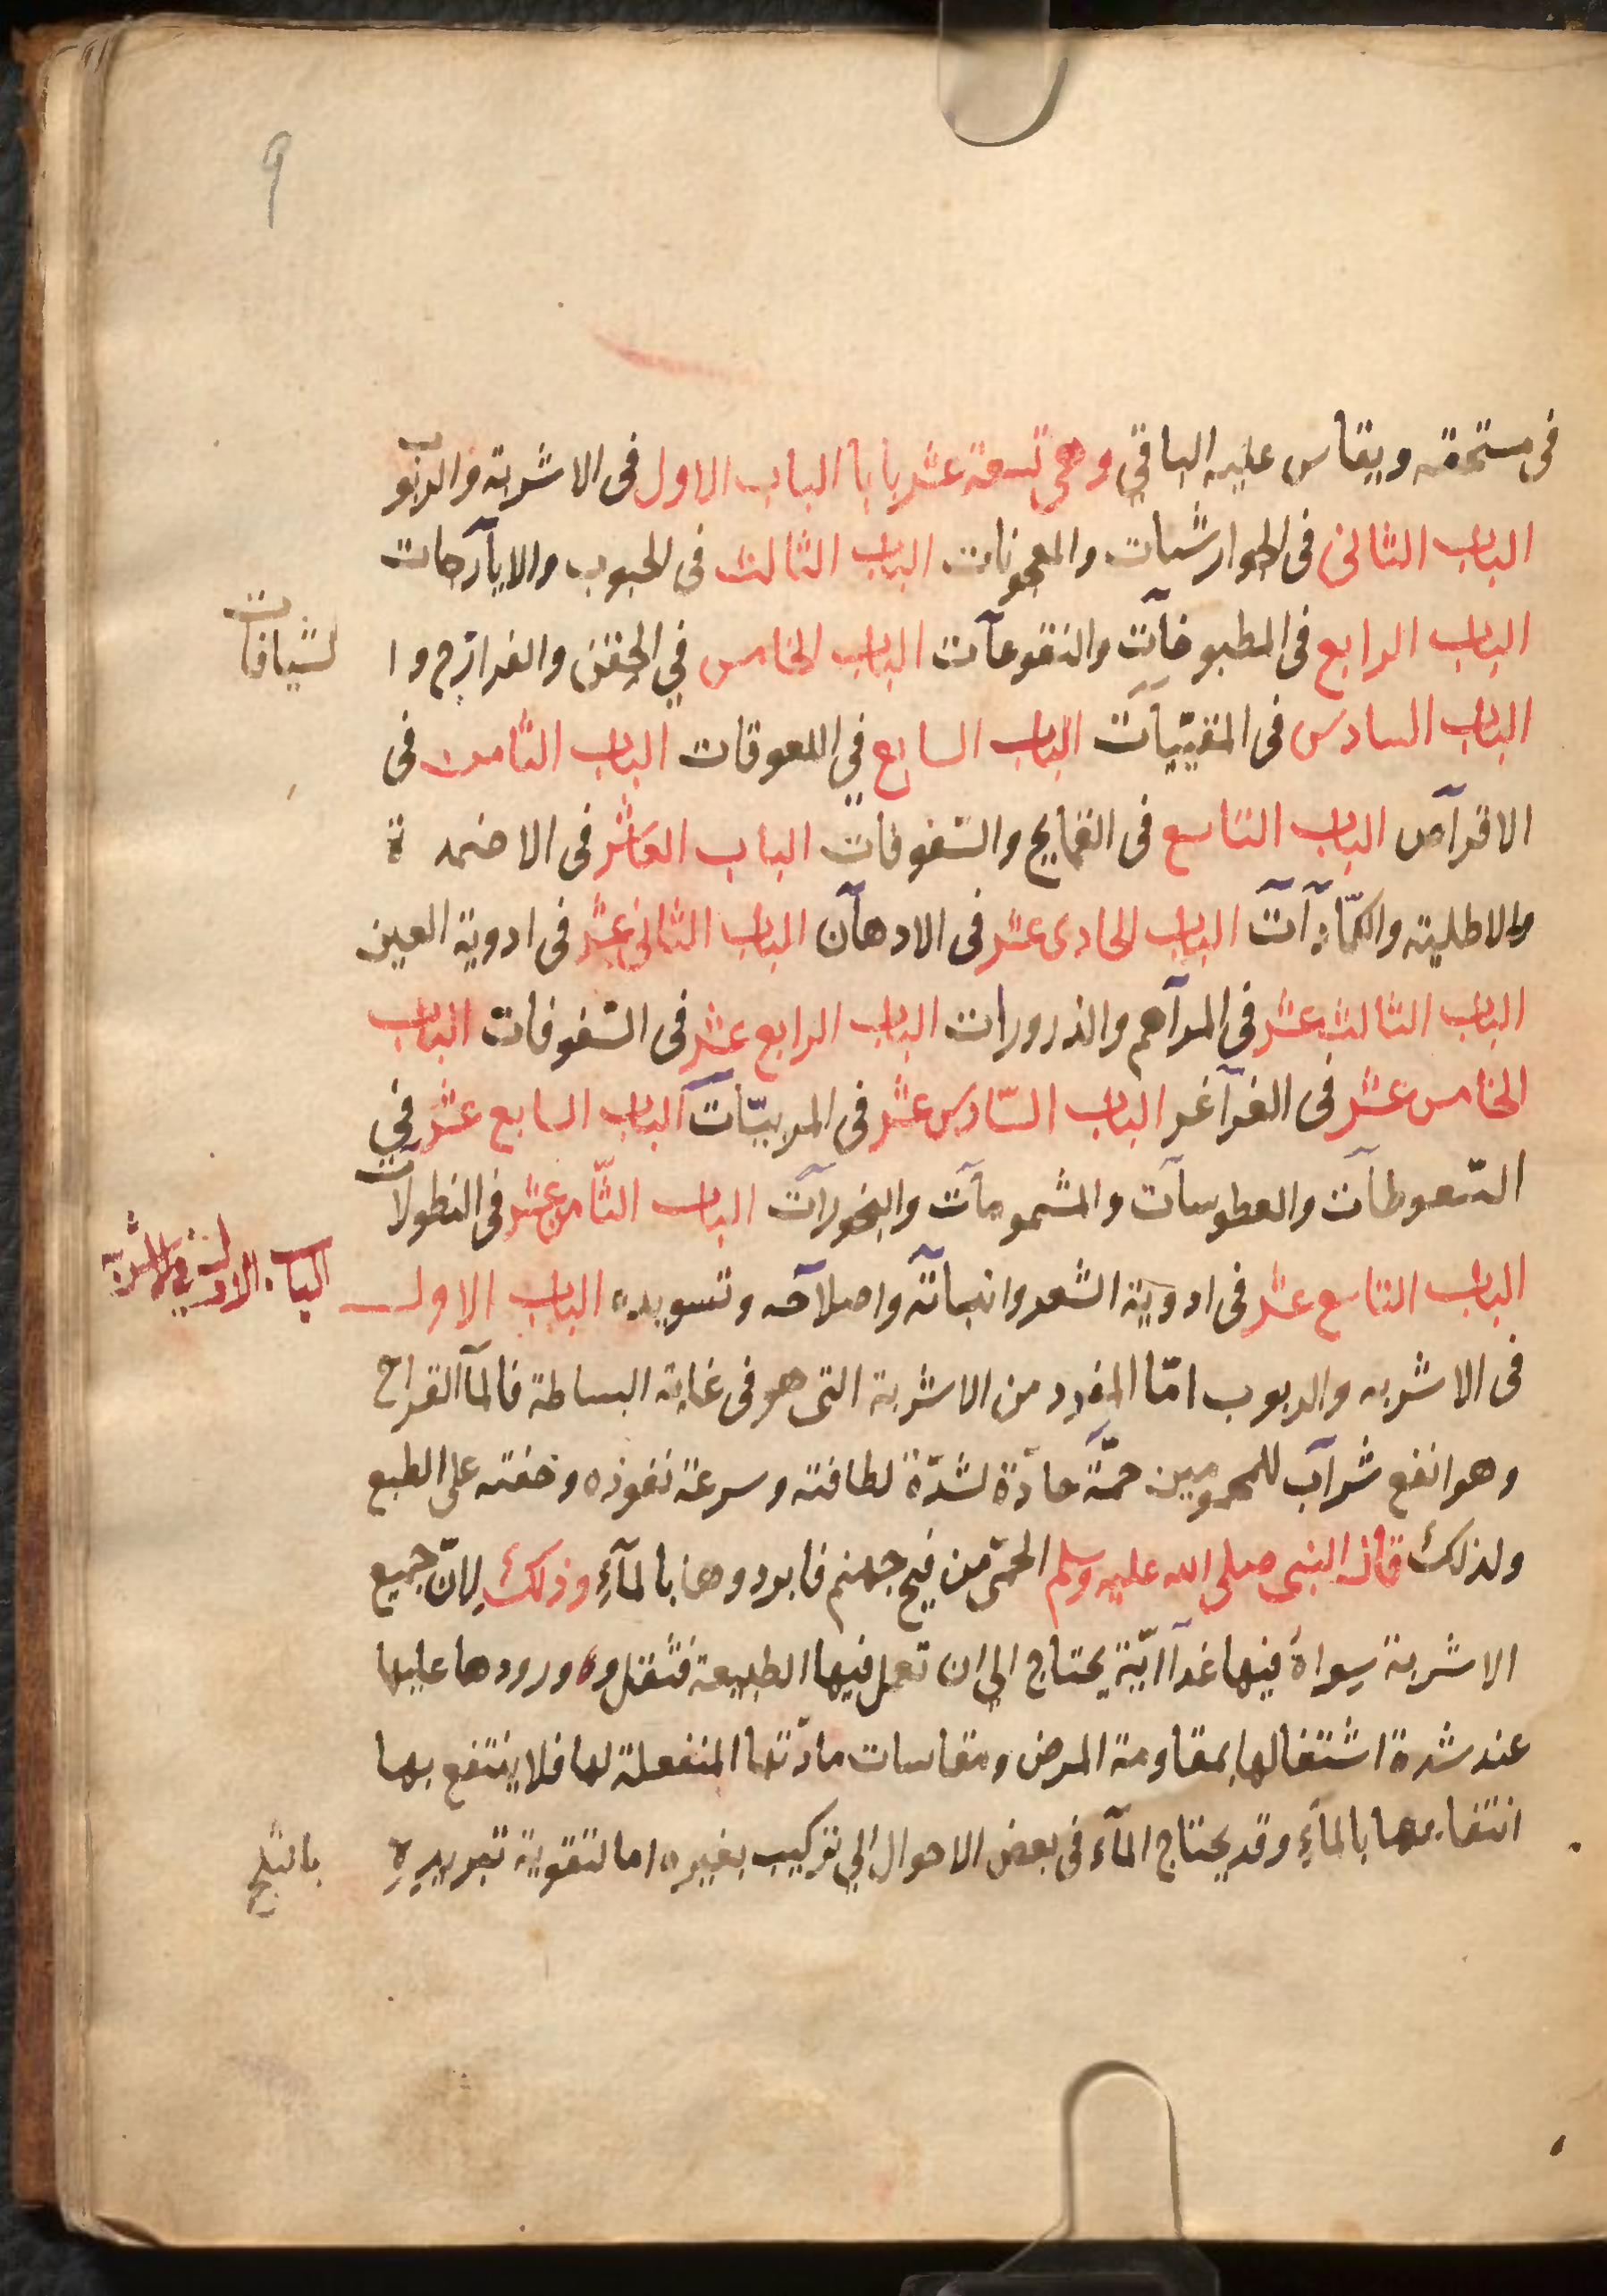 9
فى مستحقه ويقاس عليه الباقي وهى تسعة عشر بابا الباب الاول فى الاشربة والربوب
الباب الثانى فى الجوارشيات والمعجونات الباب الثالث فى الحبوب والايارجات
الباب الرابع فى المطبوخات والنقوعات الباب الخامس في الحقن والفرازج وا لشيافات
الباب السادس فى المقيّيات الباب السابع في اللعوقات الباب الثامن فى
الاقراص الباب التاسع فى القمايح والسّفوفات الباب العاشر فى الاضمد ة
والاطلية والكمّادات الباب الحادى عشر فى الادهان الباب الثانى عشر فى ادوية العين
الباب الثالث عشر فى المراهم والذرورات الباب الرابع عشر فى السّفوفات الباب
الخامس عشر فى الغراغر الباب السّادس عشر فى المربيّات الباب السابع عشر في
السّعوطات والعطوسات والمشمومات والبخورات الباب الثّامن عشر فى النطولات
الباب التاسع عشر فى ادوية الشعر وانباته واصلاحه وتسويده الباب الاول
الباب الاول فى الاشربه
فى الاشربه والربوب امّا المفرد من الاشربة التى هو فى غاية البساطة فالمآ القراح
وهو انفع شراب للمحمومين حمّة حادّة لشدّة لطافته وسرعة نفوذه وخفته على الطبع
ولذلك قال النبى صلى الله عليه وسلم الحمّى من فيح جهنم فابردوها بالمآء وذلك لانّ جميع
الاشربة سواهُ فيها غدآايّة يحتاج الي ان تعمل فيها الطبيعة فثقل وه ورودها عليها
عند شدة اشتغالها بمقاومة المرض ومقاسات مادّتها المنفعلة لها فلا ينتفع بها
انتفاعها بالمآءِ وقد يحتاج المآء فى بعض الاحوال الي تركيب بغيره اما لتقوية تبريدهِ
بالثلج